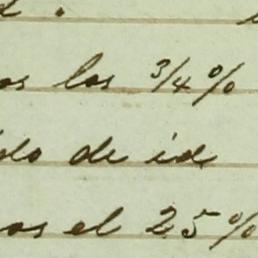 os los 3/4 %
ido de id
os el 25 %